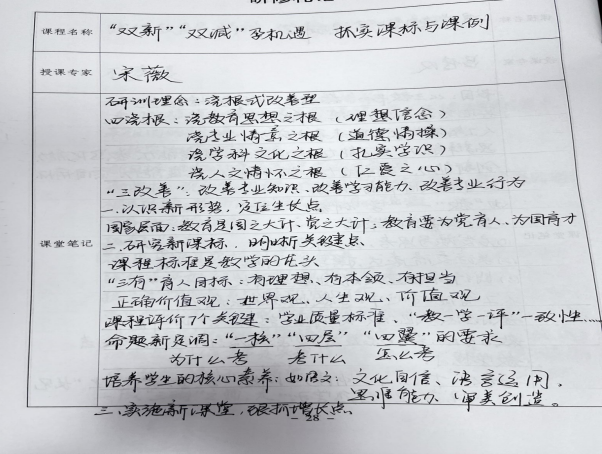 课程名称 “双新”“双减”孕机遇 抓实课标与课例
授课专家 宋薇
研训理念：浇根式改善型
四浇根：浇教育思想之根（理想信念）
浇专业情意之根（道德情操）
浇学科文化之根（扎实学识）
浇人文情怀之根（仁爱之心）
“三改善”：改善专业知识、改善学习能力、改善专业行为
一、认识新形势，定位生长点
国家层面：教育是国之大计、党之大计；教育要为党育人、为国育才
课堂笔记
二、研究新课标，明晰关键点
课程标准是教学的龙头
“三有”育人目标：有理想、有本领、有担当
正确价值观：世界观、人生观、价值观
课程评价7个关键：学业质量标准、“教—学—评”一致性……
命题新走调：“一核”“四层”“四翼”的要求
为什么考 考什么 怎么考
培养学生的核心素养：如语文：文化自信、语言运用、
思维能力、审美创造。
三、实施新课堂，狠抓增长点
- 28 -